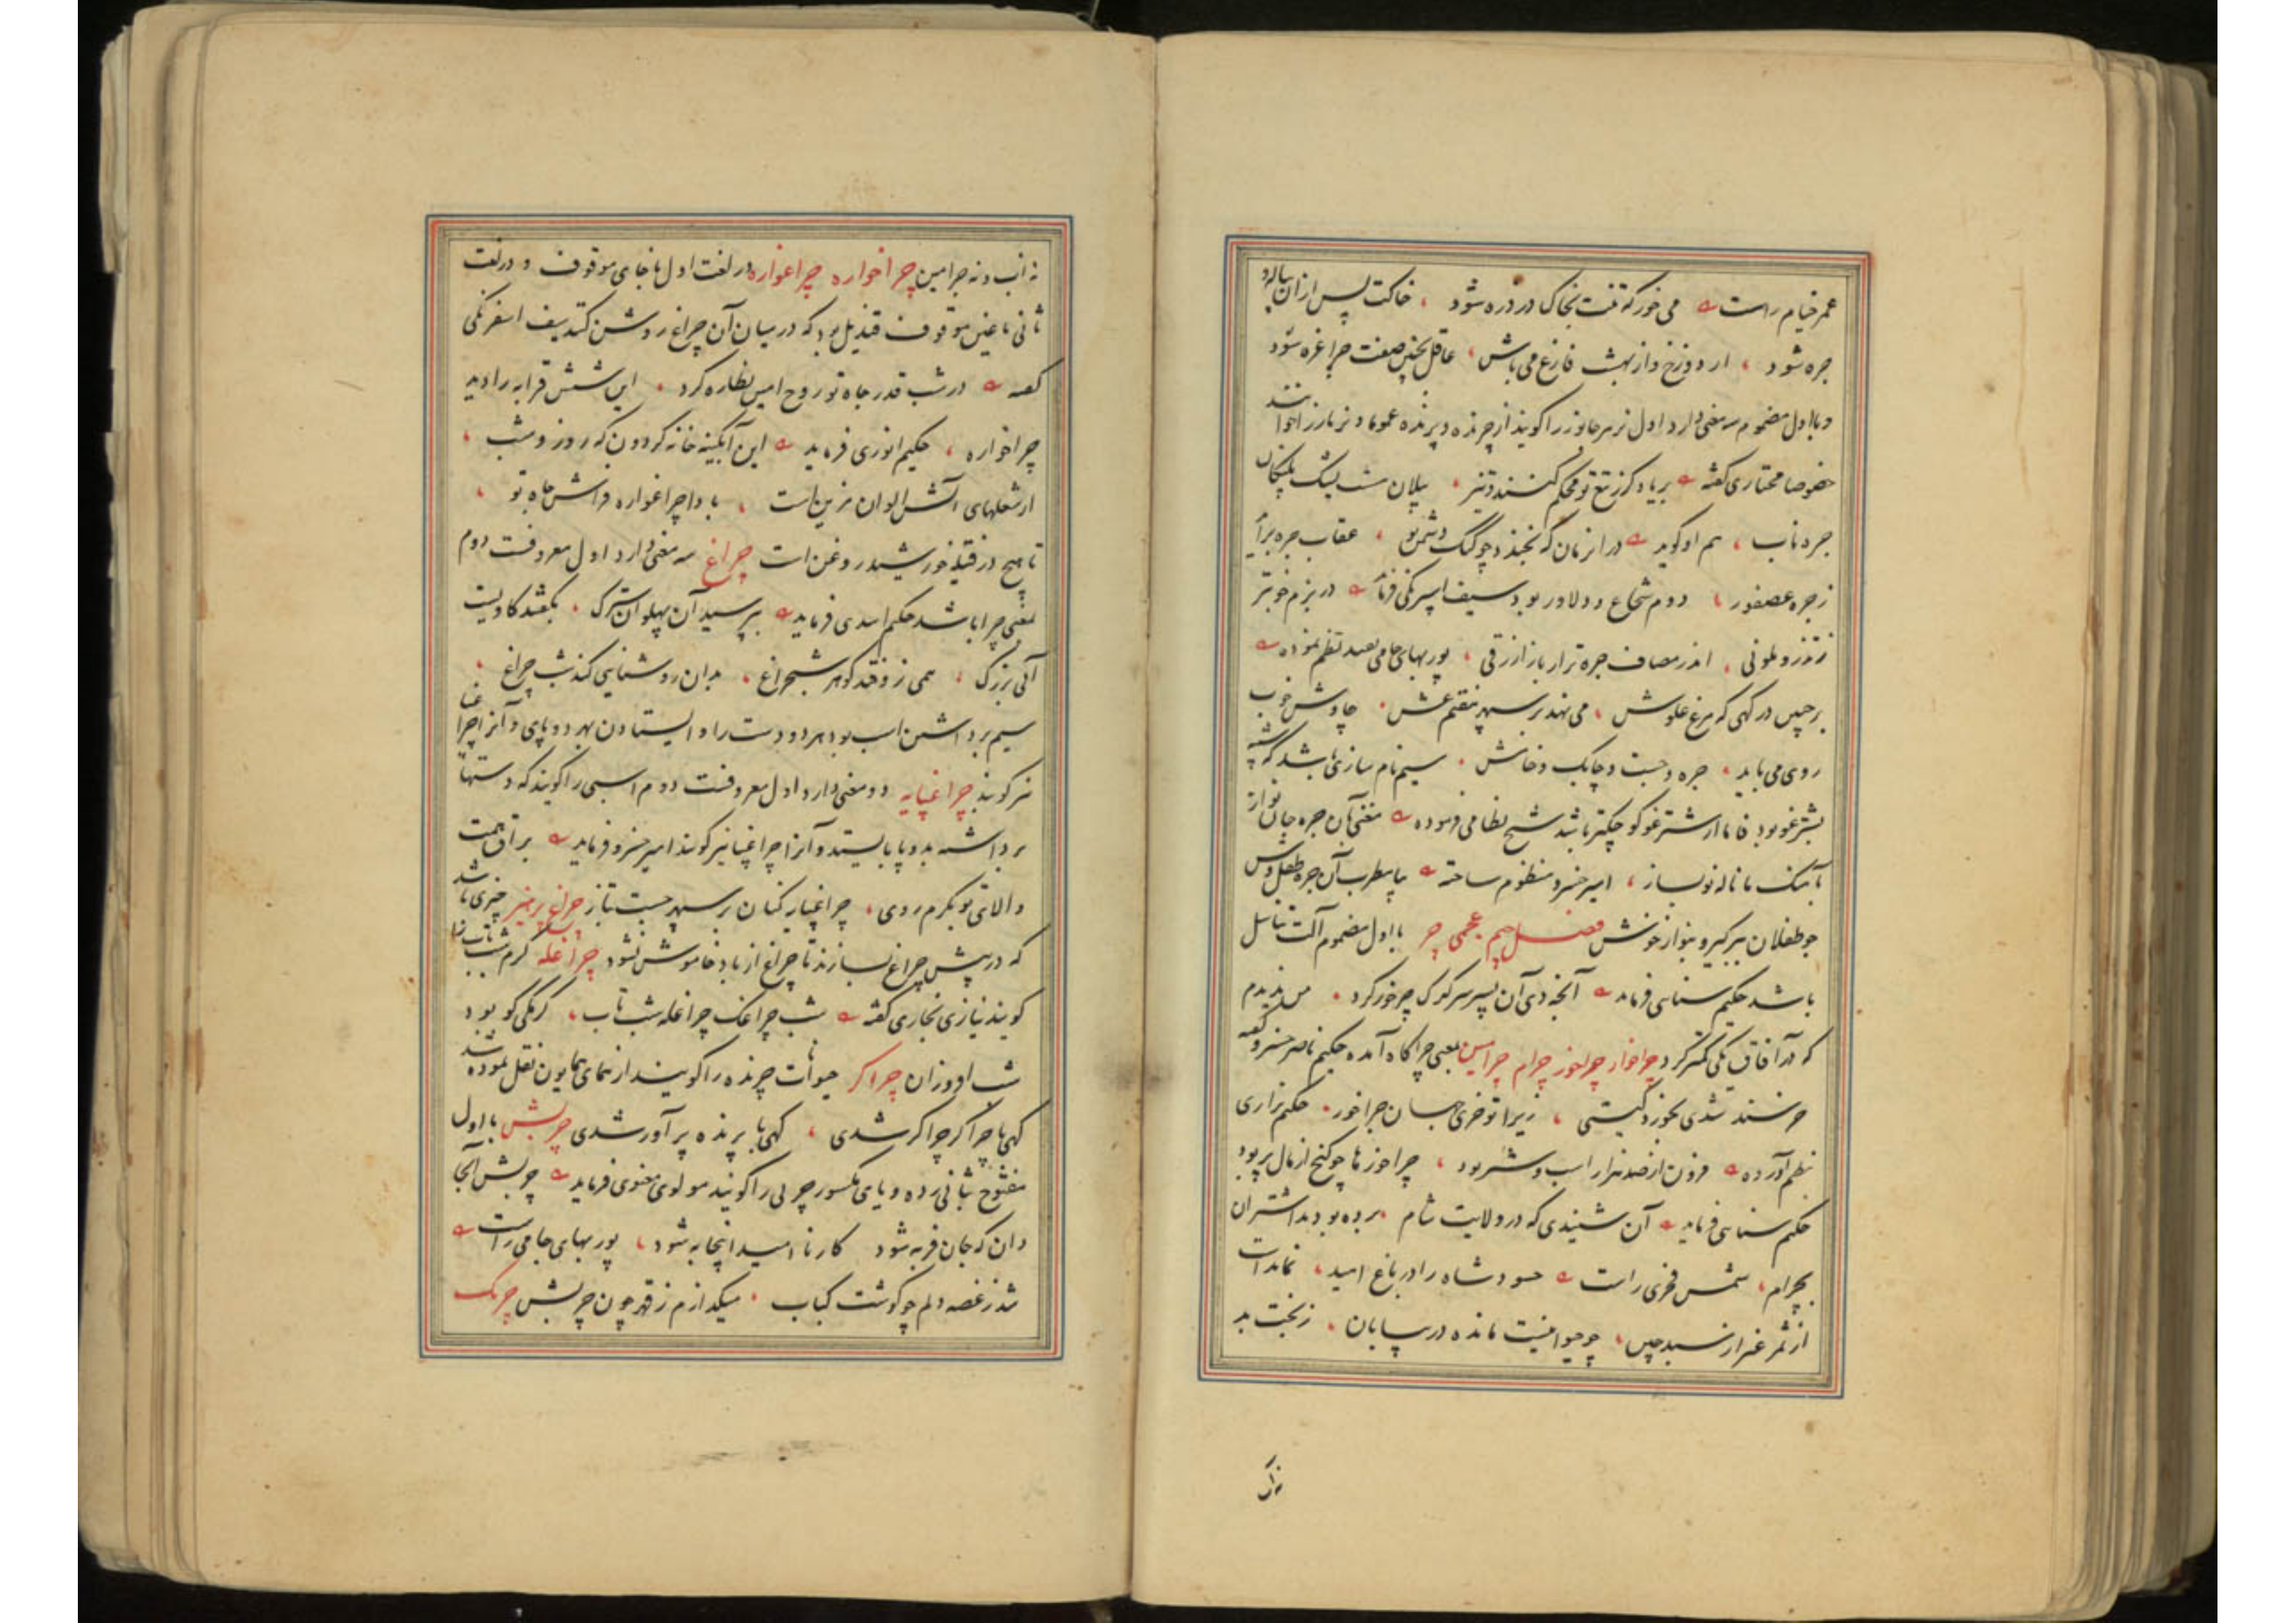 عمر خیام راست می خور که تنت بخاک در ذره شود ، خاکت پس از آن پیاله و
جره شود ، از دوزخ و از بهشت فارغ می باش ، عاقل بچنین صفت چرا غره شود
و با اول مضموم سه معنی دارد اول نر هر جانور را گویند از چرنده و پرنده عموما و نر باز را خوانند
خصوصا مختاری گفته تیغ تو محکم کنند پلنگان
جره ناب ، هم او گوید در آنزمان که بجنبد چو کبک دشمن تو ، عقاب جره برآید
زجره عصفور ، دوم شجاع و دلاور بود سیف اسپرنگی در بزم خوبتر
ز تذرو ملونی ، اندر مصاف جره تر از باز ازرقی ، پور بهای جامی نظم نموده
بر چین در گهی که مرغ علوش ، می نهد بر سپهر عش ، چاوش خوب
روی می باید ، جره و چست و چابک و خاش ، سیم نام سازی باشد که شبیه
بشترغو بود فاما از شترغو کوچکتر باشد شیخ نظامی فرموده مغنی آن جره جان نواز
آهنگ ما ناله نو بساز ، امیر خسرو منظوم ساخته بیا مطرب آن جره طفل وش
چو طفلان ببر گیر و بنواز خوش فصل جیم عجمی چر با اول مضموم آلت تناسل
باشد حکیم سنایی فرماید آنچه دی آن پسر سرگرک چر خور کرد ، من ندیدم
که در آفاق یکی کمتر کرد چراخوار چراخور چرام چرامین بمعنی چراگاه آمده حکیم ناصر خسرو گفته
خرسند شدی بخورد گیتی ، زیرا تو خری جهان چراخور ، حکیم نزاری
نظم آورده فزون از صد هزار اسب و شتر بود ، چراخورها چو گنج از مال پر بود
حکیم سنایی فرماید آن شنیدی که در ولایت شام ، برده بودند اشتران
بچرام ، شمس فخری راست حسود شاه را در باغ امید ، نماندست
از ثمر غیر از سپید چین ، چو حیوانیست مانده در بیابان ، ز بخت بد
نه آب و نه چرامین چراخواره چراغواره در لغت اول با خای موقوف و در لغت
ثانی با غین موقوف قندیل بود که در میان آن چراغ روشن کنند سیف اسفرنگی
گفته در شب قدر جاه تو روح امین نظاره کرد ، این شش قرابه را دید
چراخواره ، حکیم انوری فرماید این آبگینه خانه گردون که روز و شب ،
از شعلهای آتش الوان مزین است ، بادا چراغواره فراش جاه تو ،
تا هیچ در فتیله خورشید روغن است چراغ سه معنی دارد اول معروفست دوم
بمعنی چرا باشد حکیم اسدی فرماید بپرسید آن پهلوان سترک ، بگفتند گاویست
آبی بزرگ ، همی زو فتد گوهر شبچراغ ، بدان روشنایی کند شب چراغ ،
سیم برداشتن اسب بود هر دو دست را و ایستادن بهر دو پای و آنرا چراغپا
نیز گویند چراغپایه دو معنی دارد اول معروفست دوم اسبی را گویند که دستها
برداشته بدو پا بایستد و آنرا چراغپا نیز گویند امیر خسرو فرماید براق همت
والای تو بگرم روی ، چراغپایه کنان بر سپهر جست تاز چراغ پرهیز چیزی باشد
که در پیش چراغ بسازند تا چراغ از باد خاموش نشود چراغله کرم شب تاب را
گویند نیازی بخاری گفته شب چراغک چراغله شب تاب ، کرمکی کو بود
شب افروزان چراگر حیوانات چرنده را گویند از همای همایون نقل نموده شد
گهی با چراگر چراگر شدی ، گهی با پرنده پر آور شدی چربش با اول
مفتوح بثانی زده و بای مکسور چربی را گویند مولوی معنوی فرماید چربش آنجا
دان که جان فربه شود کار نا امید اینجا به شود ، پور بهای جامی راست
شد ز غصه دلم چو گوشت کباب ، میگدازم ز قهر چون چربش چربک
نه آب